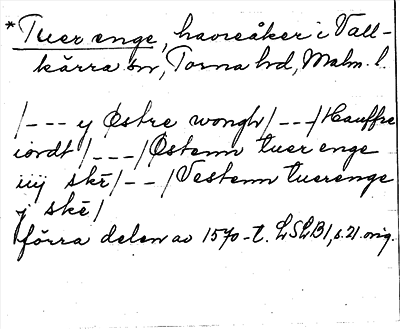 *Tuer enge, havreåker i Vall-
kärra sn, Torna hd, Malm. l.
/--- y Østre wongh/---/Hauffre
iordt/---/Østenn tuer enge
iiij skē/--/Vestenn tuerenge
j skē/
förra delen av 1570-t. LSLB1, s. 21. orig.